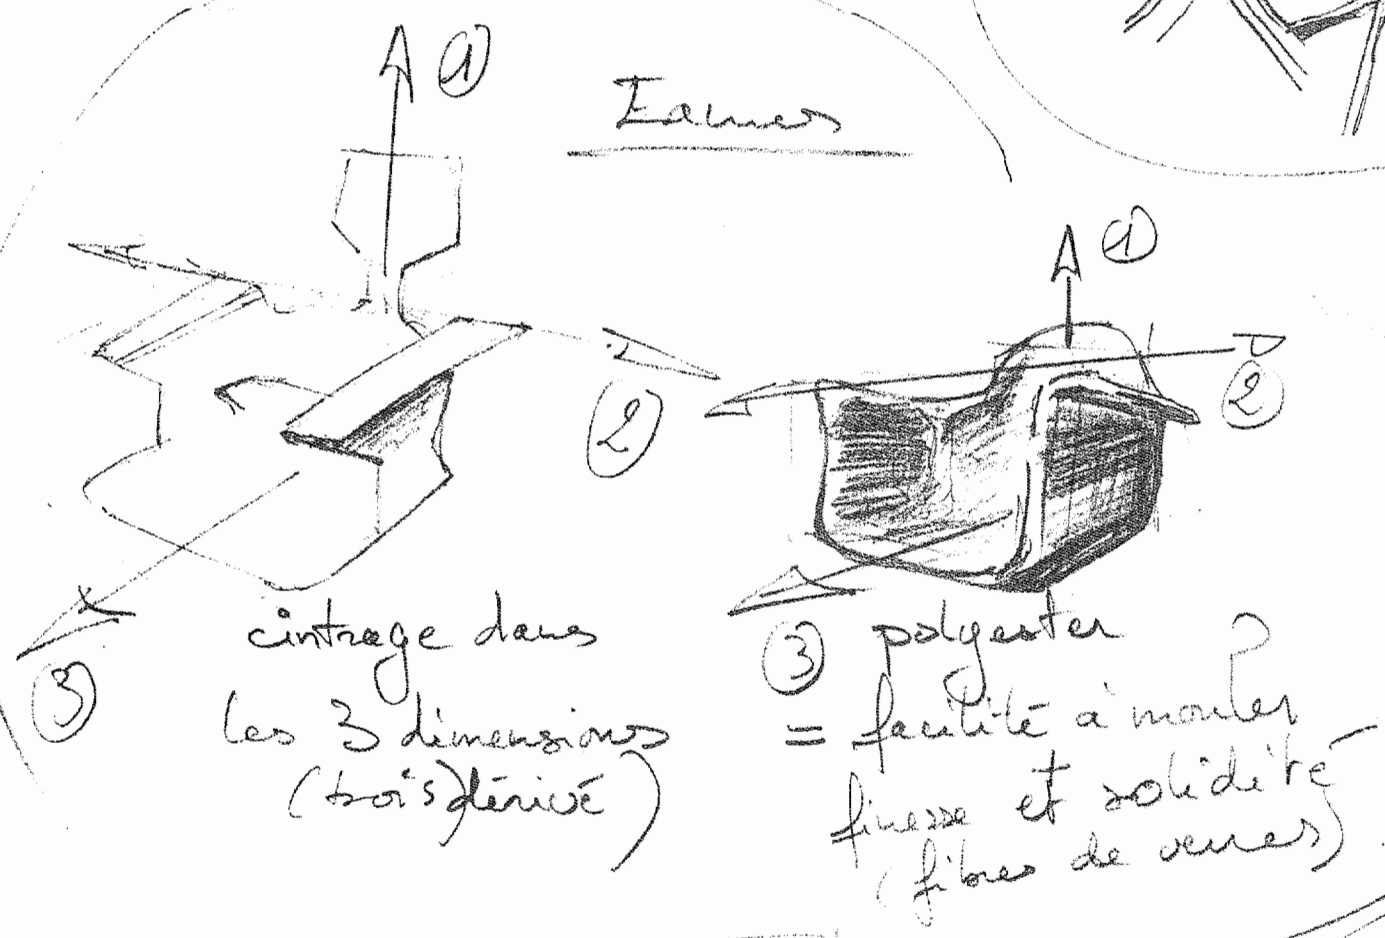 Eames
①
②
③
cintrage dans
les 3 dimensions
(bois) dérivé)
①
②
③
polyester ?
= facilité à mouler
finesse et solidité
(fibres de verres)